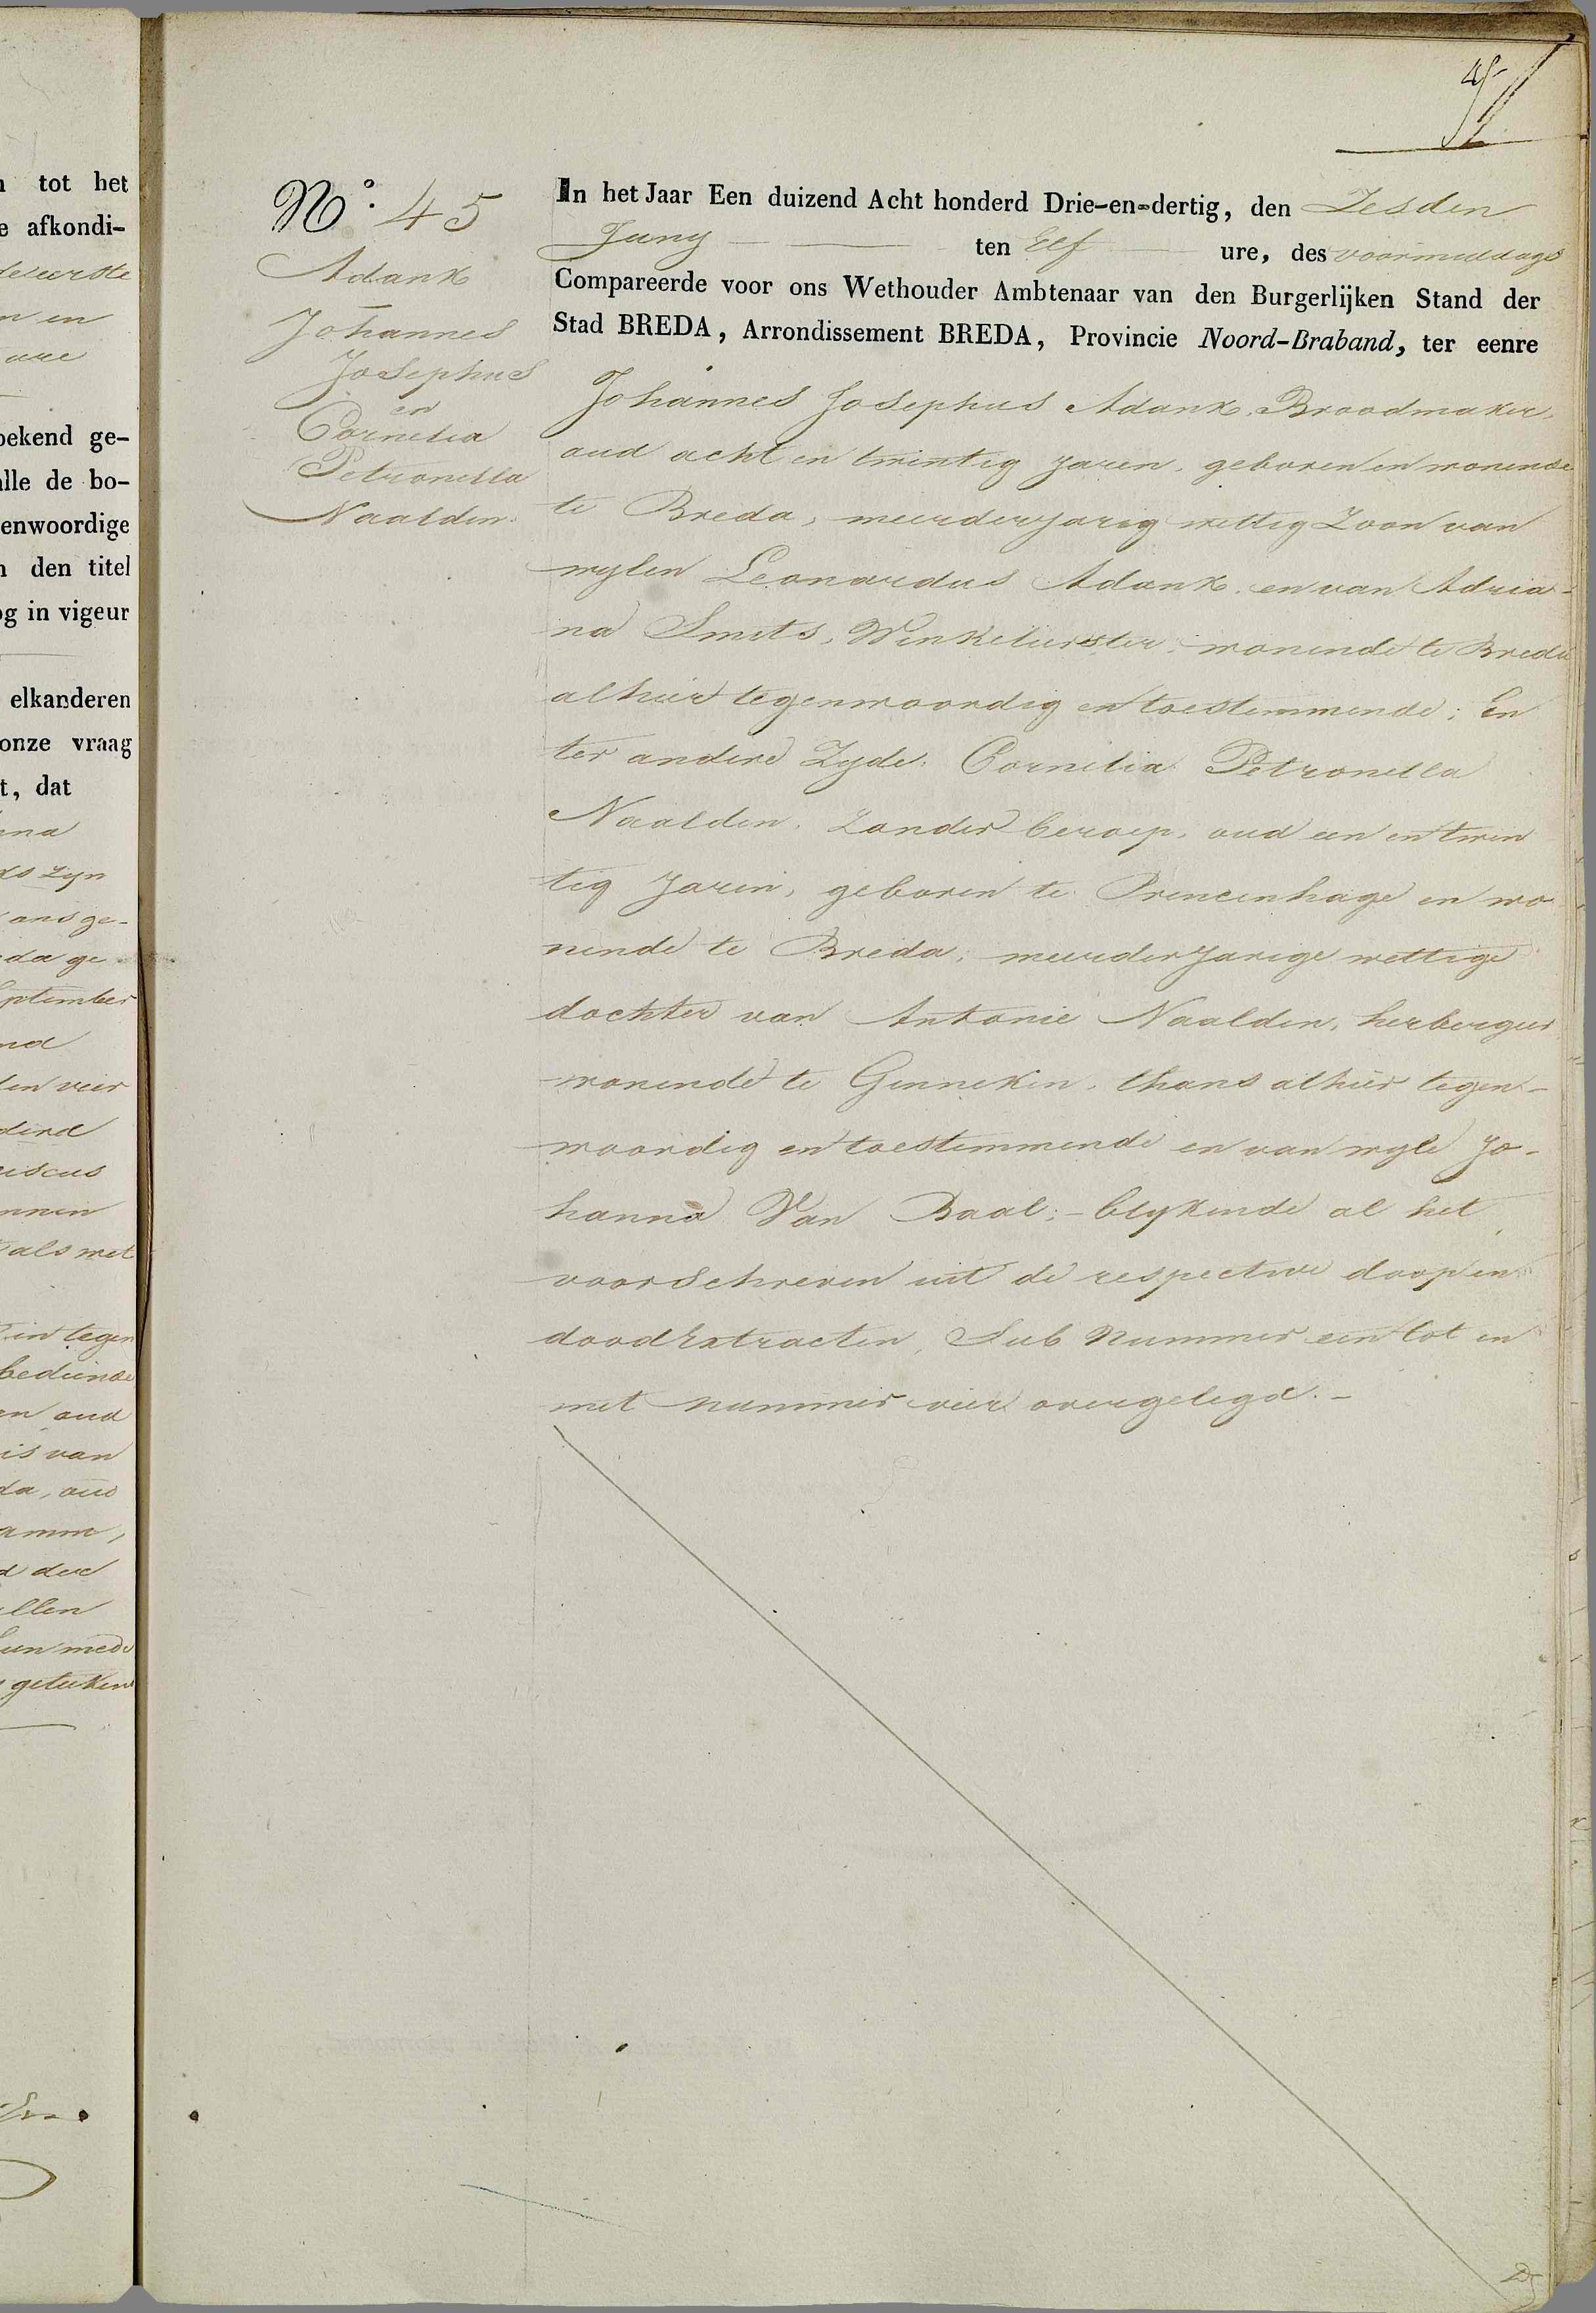 tot het
afkondi-
eerste
en
bekend ge-
alle de bo-
enwoordige
den titel
og in vigeur
elkanderen
onze vraag
t, dat
ena
zyn
ons ge-
da ge
eptember
nd
en vier
derd
ciscus
nnen
als met
in tegen
bediende
en oud
is van
da, oud
amm,
der
llen
hun mede
geteeken
45
No. 45
Adank
Johannes
Josephus
en
Cornelia
Petronella
Naalden
In het Jaar Een duizend Acht honderd Drie-en-dertig, den Zesden
Juny ten Elf ure, des voormiddags
Compareerde voor ons Wethouder Ambtenaar van den Burgerlijken Stand der
Stad BREDA, Arrondissement BREDA, Provincie Noord-Braband, ter eenre
Johannes Josephus Adank, Broodmaker,
oud acht en twintig Jaren, geboren en wonende
te Breda, meerderjarig wettig Zoon van
wylen Leonardus Adank, en van Adria-
na Smits, Winkelierster, wonende te Breda
alhier tegenwoordig en toestemmende; En
ter andere Zyde: Cornelia Petronella
Naalden, Zonder beroep, oud een en twin
tig Jaren, geboren te Princenhage en wo
nende te Breda, meerderJarige wettige
dochter van Antonie Naalden, herbergier
wonende te Ginneken, thans alhier tegen-
woordig en toestemmende en van wyle Jo-
hanna Van Baal; - blykende al het
voorschreven uit de respective doop en
dood Extracten, Sub Nummer een tot en
met nummer vier overgelegd. -